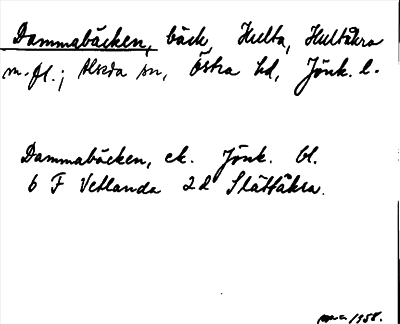 Dammabäcken, bäck, Hulta, Hultåkra
m. fl.; Alseda sn, Östra hd, Jönk. l.
Dammabäcken, ek. Jönk. bl.
6 F Vetlanda 2 d Slättåkra.
1958.